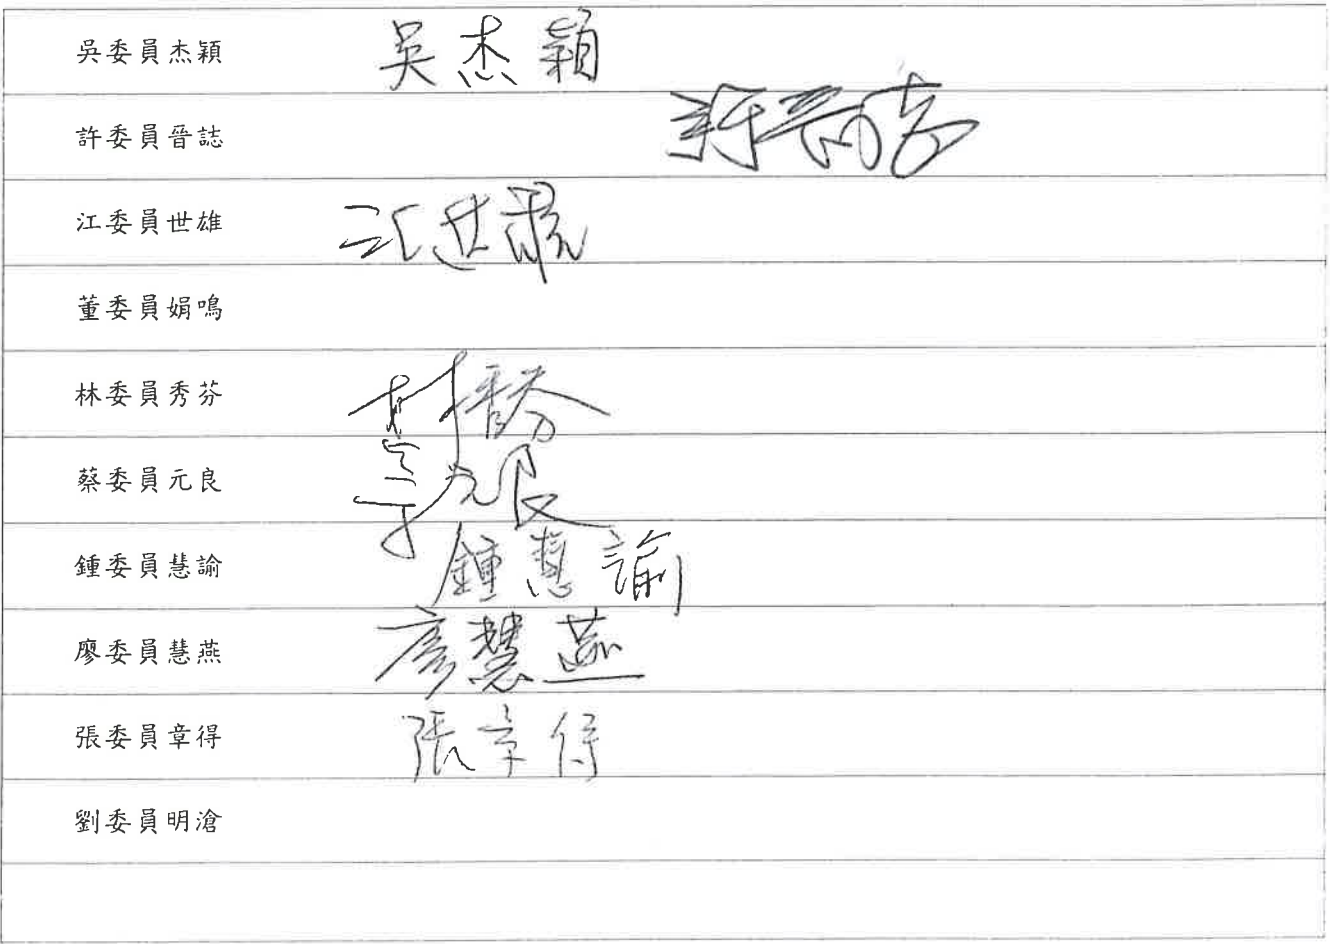 吳委員杰穎 吳杰穎
許委員晉誌 許晉誌
江委員世雄 江世雄
董委員娟鳴
林委員秀芬 林秀芬
蔡委員元良 蔡元良
鍾委員慧諭 鍾慧諭
廖委員慧燕 廖慧燕
張委員章得 張章得
劉委員明滄